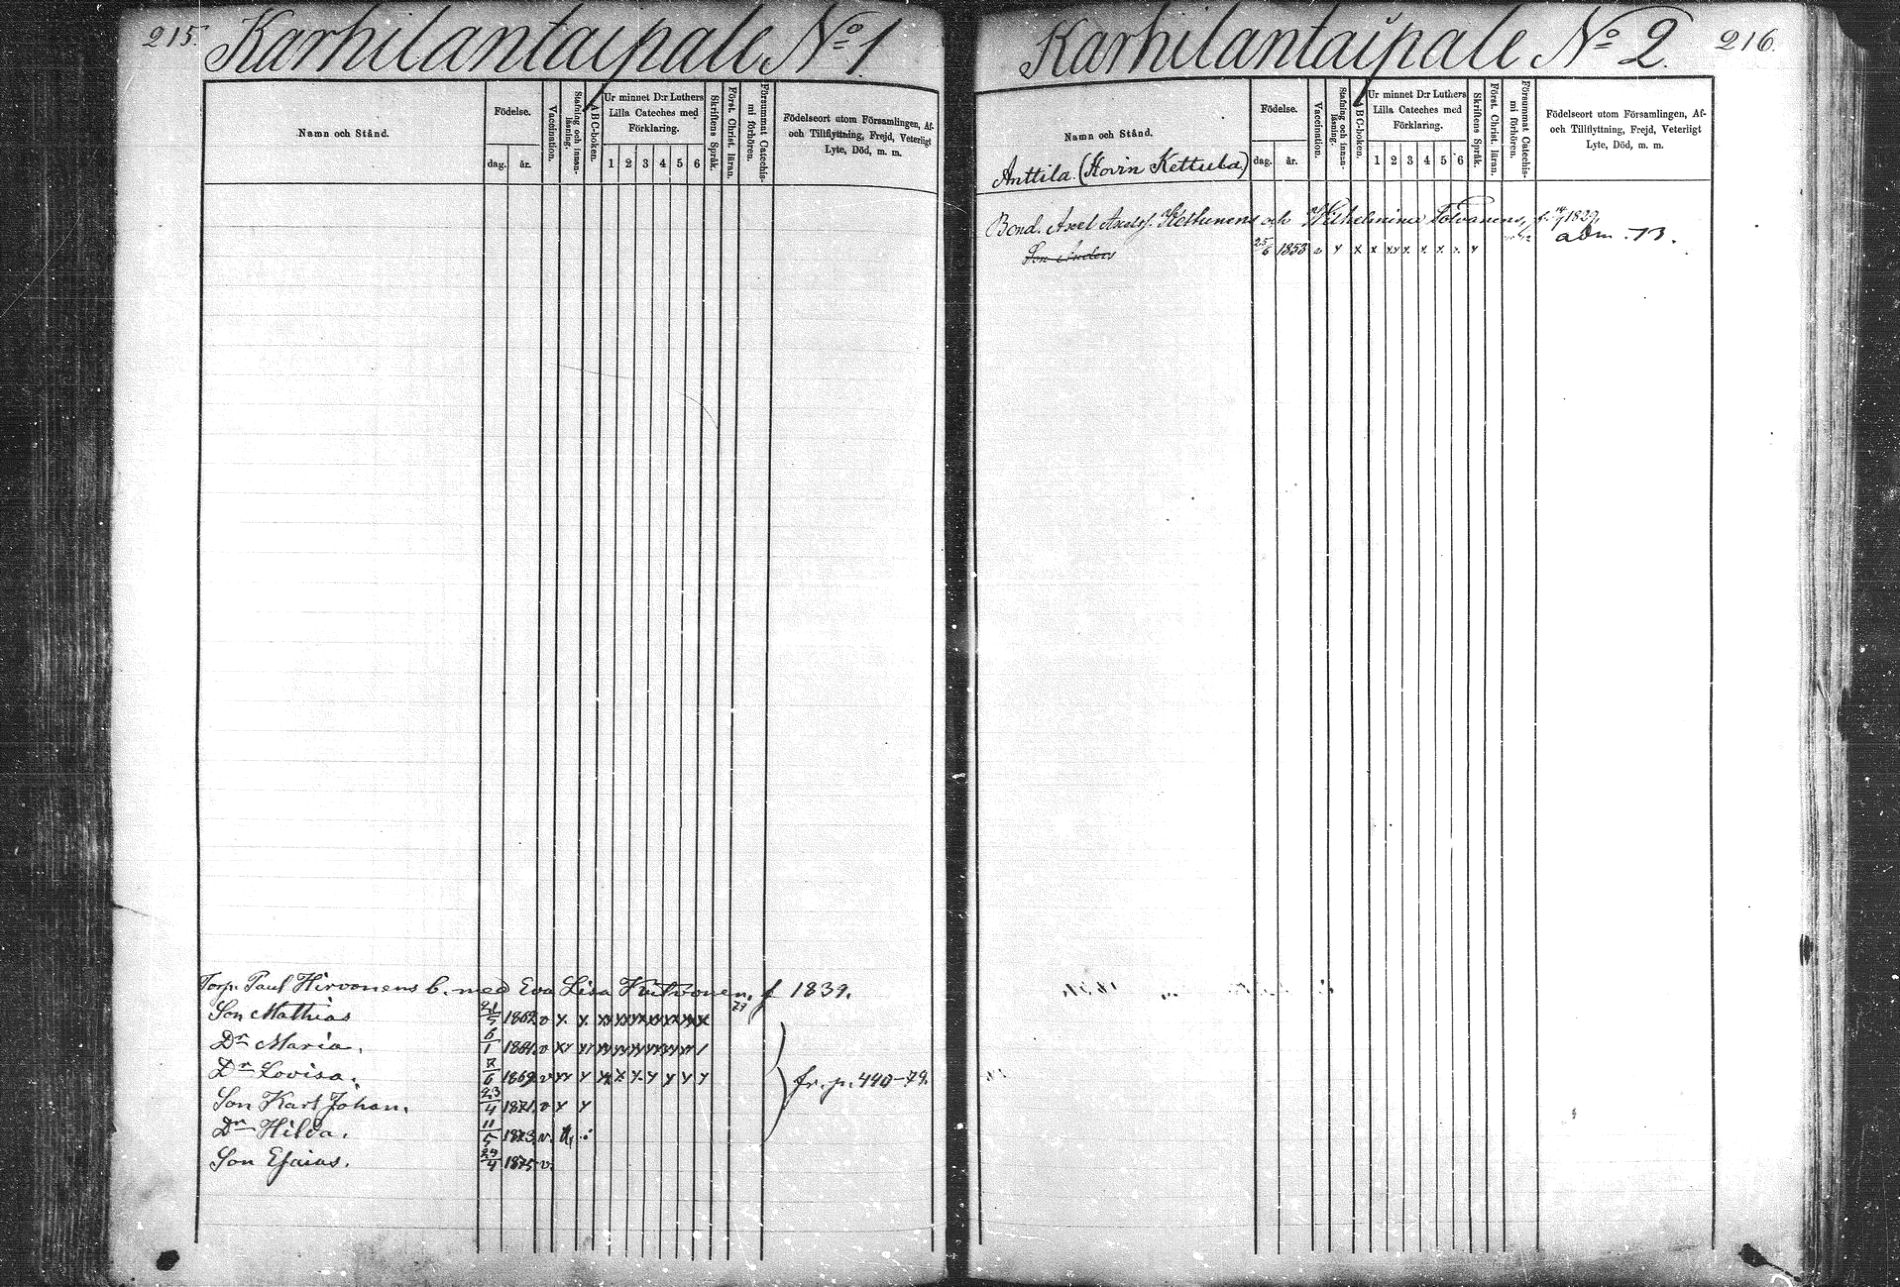 215.
Karhilantaipale No 1.
Namn och Stånd.
Födelse.
dag. år.
Vaccination.
Stafning och innanläsning.
ABC-boken.
Ur minnet D:r Luthers Lilla Cateches med Förklaring.
1 2 3 4 5 6
Skriftens Språk.
Först. Christ. läran.
Försummat Catechismi förhören.
Födelseort utom Församlingen, Af-
och Tillflyttning, Frejd, Veterligt
Lyte, Död, m. m.
Torp. Paul Hirvonens b. med Eva Lisa f 1839.
Son Mathias 1862 v x x
Dr Maria. 6/1 v
Dr Lovisa. 1869 v
Son Karl Johan. 23/4 1871 v x x
Dr Hilda. 11/5 1873 v.
Son Esaias. 29/4 1875 v.
fr. p. 440-79.
216.
Karhilantaipale No 2.
Namn och Stånd.
Anttila. (Hovin Kettula)
Födelse.
dag. år.
Vaccination.
Stafning och innanläsning.
ABC-boken.
Ur minnet D:r Luthers
Lilla Cateches med
Förklaring.
1 2 3 4 5 6
Skriftens Språk.
Först. Christ. läran.
Försummat Catechismi förhören.
Födelseort utom Församlingen, Af-
och Tillflyttning, Frejd, Veterligt
Lyte, Död, m. m.
Bond. Axel Axelss. Kettunens och Wilhelmina Tolvanens, f. 1829,
Son 25/6 1853 v x x x xx x x x x x adm. 73.